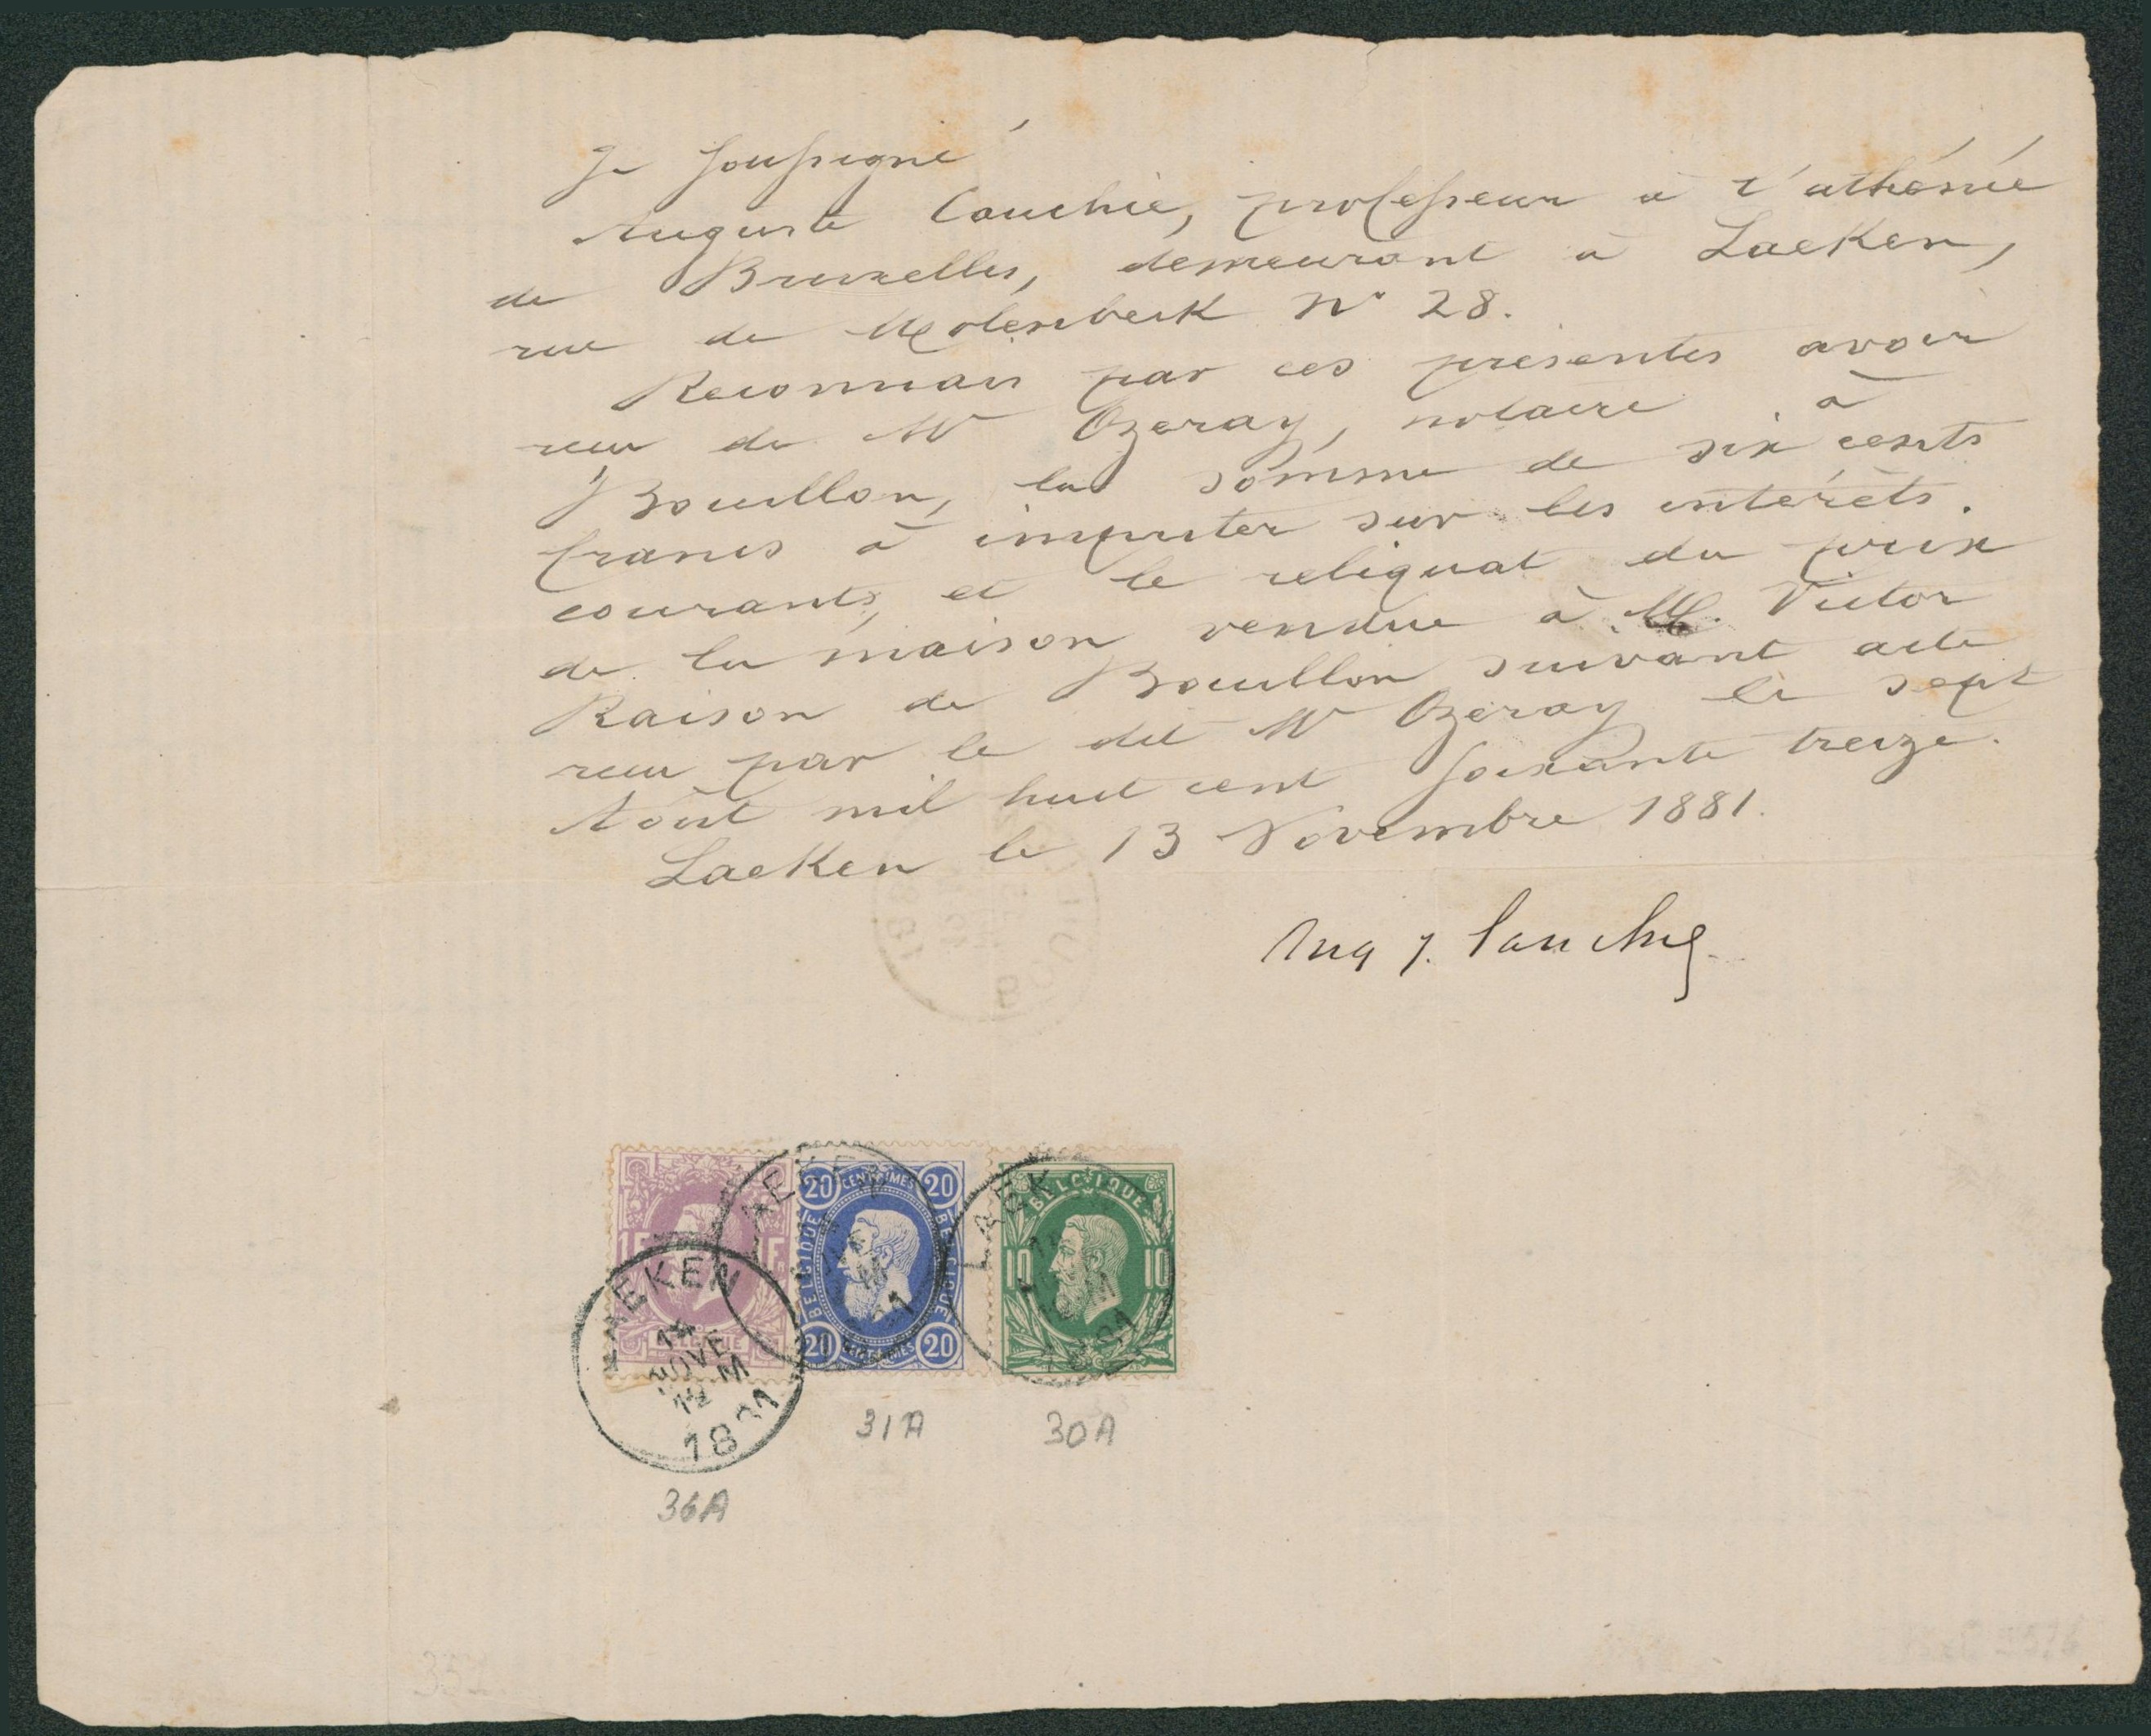 Je soussigné
Auguste Cauchie, professeur à l'athénée
de Bruxelles, demeurant à Laeken,
rue de Molenbeek N° 28.
Reconnais par ces présentes avoir
recu de Me Ozeray, notaire à
Bouillon, la somme de six cents
francs à imputer sur les intérèts
courants, et le reliquat du prix
de la maison vendue à M. Victor
Raison de Bouillon suivant acte
recu par le dit Me Ozeray le sept
Août mil huit cent soixante treize.
Laeken le 13 Novembre 1881.
Aug J. Cauchie
BELGIQUE
1F
LAEKEN
14
NOVE
12-M
1881
20 CENTIMES 20
BELGIQUE BELGIQUE
20 CENTIMES 20
BELGIQUE
10 10
31A
30A
36A